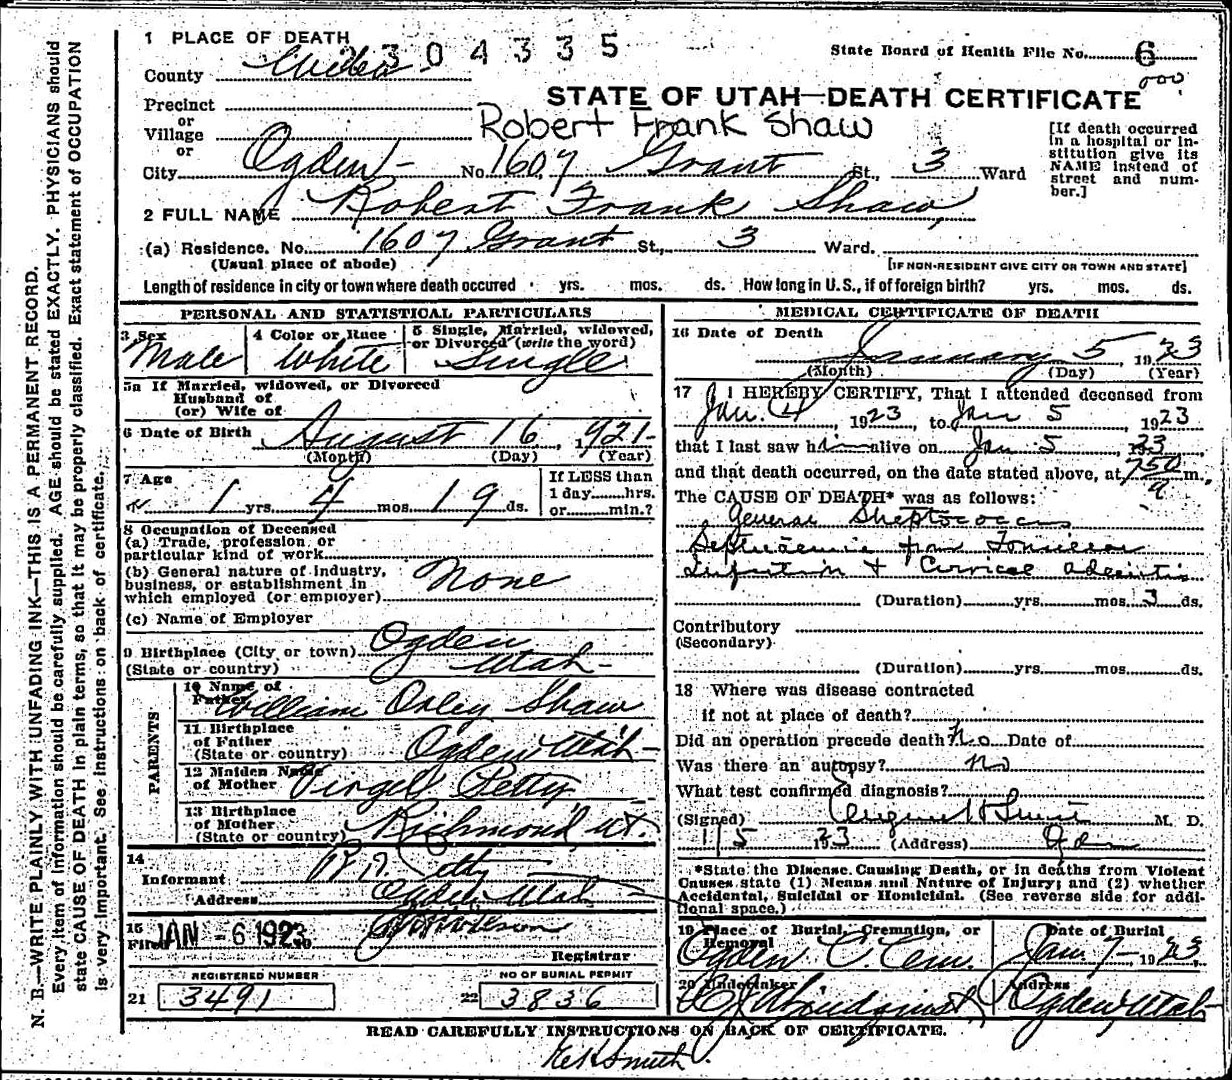 1 PLACE OF DEATH
2304335
State Board of Health File No. 6
County Weber
000
STATE OF UTAH—DEATH CERTIFICATE
Precinct
or
Village
or
Robert Frank Shaw
[If death occurred in a hospital or institution give its NAME instead of street and number.]
City Ogden No. 1607 Grant St., 3 Ward
2 FULL NAME Robert Frank Shaw
(a) Residence. No. 1607 Grant St., 3 Ward.
(Usual place of abode) [IF NON-RESIDENT GIVE CITY OR TOWN AND STATE]
Length of residence in city or town where death occurred yrs. mos. ds. How long in U.S., if of foreign birth? yrs. mos. ds.
PERSONAL AND STATISTICAL PARTICULARS
3 Sex Male
4 Color or Race White
5 Single, Married, widowed, or Divorced (write the word) Single
5a If Married, widowed, or Divorced
Husband of
(or) Wife of
6 Date of Birth August 16, 1921
(Month) (Day) (Year)
7 Age 1 yrs 4 mos. 19 ds.
If LESS than
1 day hrs.
or min.?
8 Occupation of Deceased
(a) Trade, profession or
particular kind of work
(b) General nature of industry,
business, or establishment in
which employed (or employer) None
(c) Name of Employer
9 Birthplace (City or town) Ogden
(State or country) Utah
PARENTS
10 Name of
Father William Oxley Shaw
11 Birthplace
of Father
(State or country) Ogden Utah
12 Maiden Name
of Mother Virgell Petty
13 Birthplace
of Mother
(State or country) Richmond, Ut.
14
Informant Petty
Address Ogden Utah
15
Filed JAN -6 1923 19
Registrar
REGISTERED NUMBER
21 3491
NO OF BURIAL PERMIT
22 3836
MEDICAL CERTIFICATE OF DEATH
16 Date of Death January 5 1923
(Month) (Day) (Year)
17 I HEREBY CERTIFY, That I attended deceased from
Jan. 4, 1923, to Jan 5, 1923
that I last saw him alive on Jan 5, 1923
and that death occurred, on the date stated above, at 750 a m.,
The CAUSE OF DEATH* was as follows:
General Streptococcus
Septicaemia from Tonsilar
Infection + Cervical adenitis
(Duration) yrs. mos. 3 ds.
Contributory
(Secondary)
(Duration) yrs. mos. ds.
18 Where was disease contracted
if not at place of death?
Did an operation precede death? No Date of
Was there an autopsy? No
What test confirmed diagnosis?
(Signed) M. D.
1/5 1923 (Address) Ogden
*State the Disease Causing Death, or in deaths from Violent
Causes state (1) Means and Nature of Injury; and (2) whether
Accidental, Suicidal or Homicidal. (See reverse side for addi-
tional space.)
19 Place of Burial, Cremation, or
Removal
Ogden C. Cem.
Date of Burial
Jan 7 - 1923
20 Undertaker
Lindquist
Address
Ogden, Utah
READ CAREFULLY INSTRUCTIONS ON BACK OF CERTIFICATE.
Smith
N. B.—WRITE PLAINLY WITH UNFADING INK—THIS IS A PERMANENT RECORD.
Every item of information should be carefully supplied. AGE should be stated EXACTLY. PHYSICIANS should
state CAUSE OF DEATH in plain terms, so that it may be properly classified. Exact statement of OCCUPATION
is very important. See instructions on back of certificate.